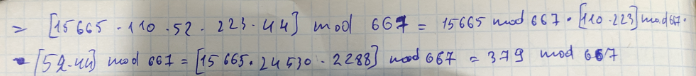 = [15665 · 110 · 52 · 223 · 44] mod 667 = 15665 mod 667 · [110 · 223] mod 667 ·
· [52 · 44] mod 667 = [15665 · 24530 · 2288] mod 667 = 379 mod 667